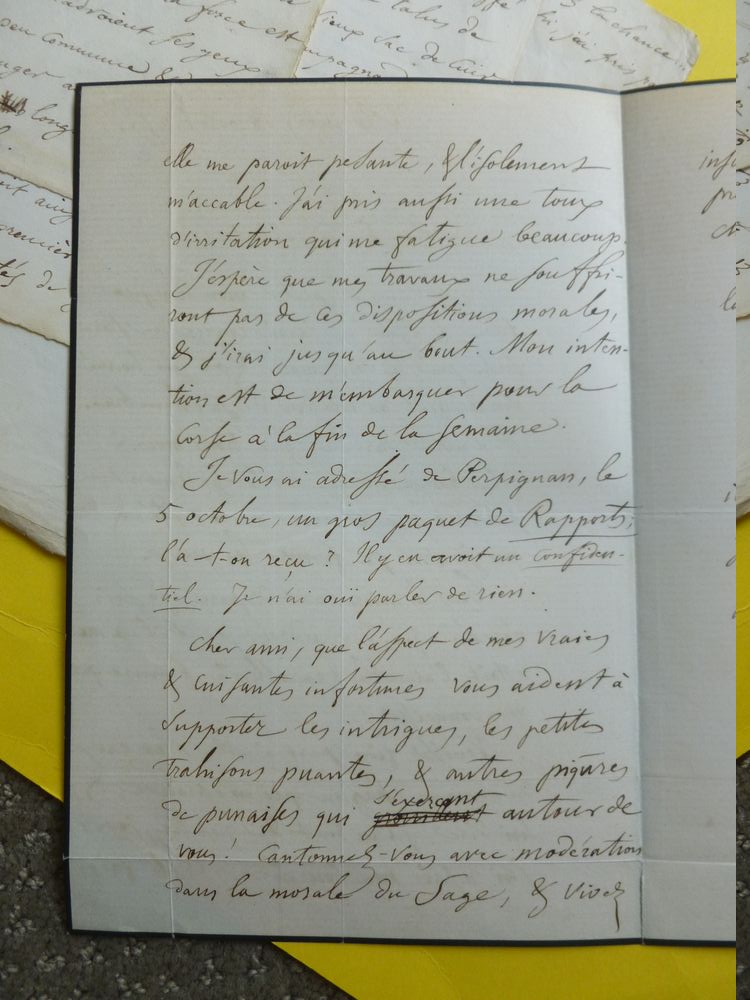 adroient ses yeux
la force est
peu commune &
long
talus de
vieux sac de cuir
la chance
j'ai pris
elle me paroit pesante, & l'isolement
m'accable. J'ai pris aussi une toux
d'irritation qui me fatigue beaucoup.
J'espère que mes travaux ne souffri-
ront pas de ces dispositions morales,
& j'irai jusqu'au bout. Mon inten-
tion est de m'embarquer pour la
Corse à la fin de la semaine.
Je vous ai adressé de Perpignan, le
5 octobre, un gros paquet de Rapports;
l'a-t-on reçu? Il y en avoit un confiden-
tiel. Je n'ai ouï parler de rien.
Cher ami, que l'aspect de mes vraies
& cuisantes infortunes vous aident à
supporter les intrigues, les petites
trahisons puantes, & autres piqûres
de punaises qui s'exercent autour de
vous! Cantonnez-vous avec modération
dans la morale du Sage, & vivez